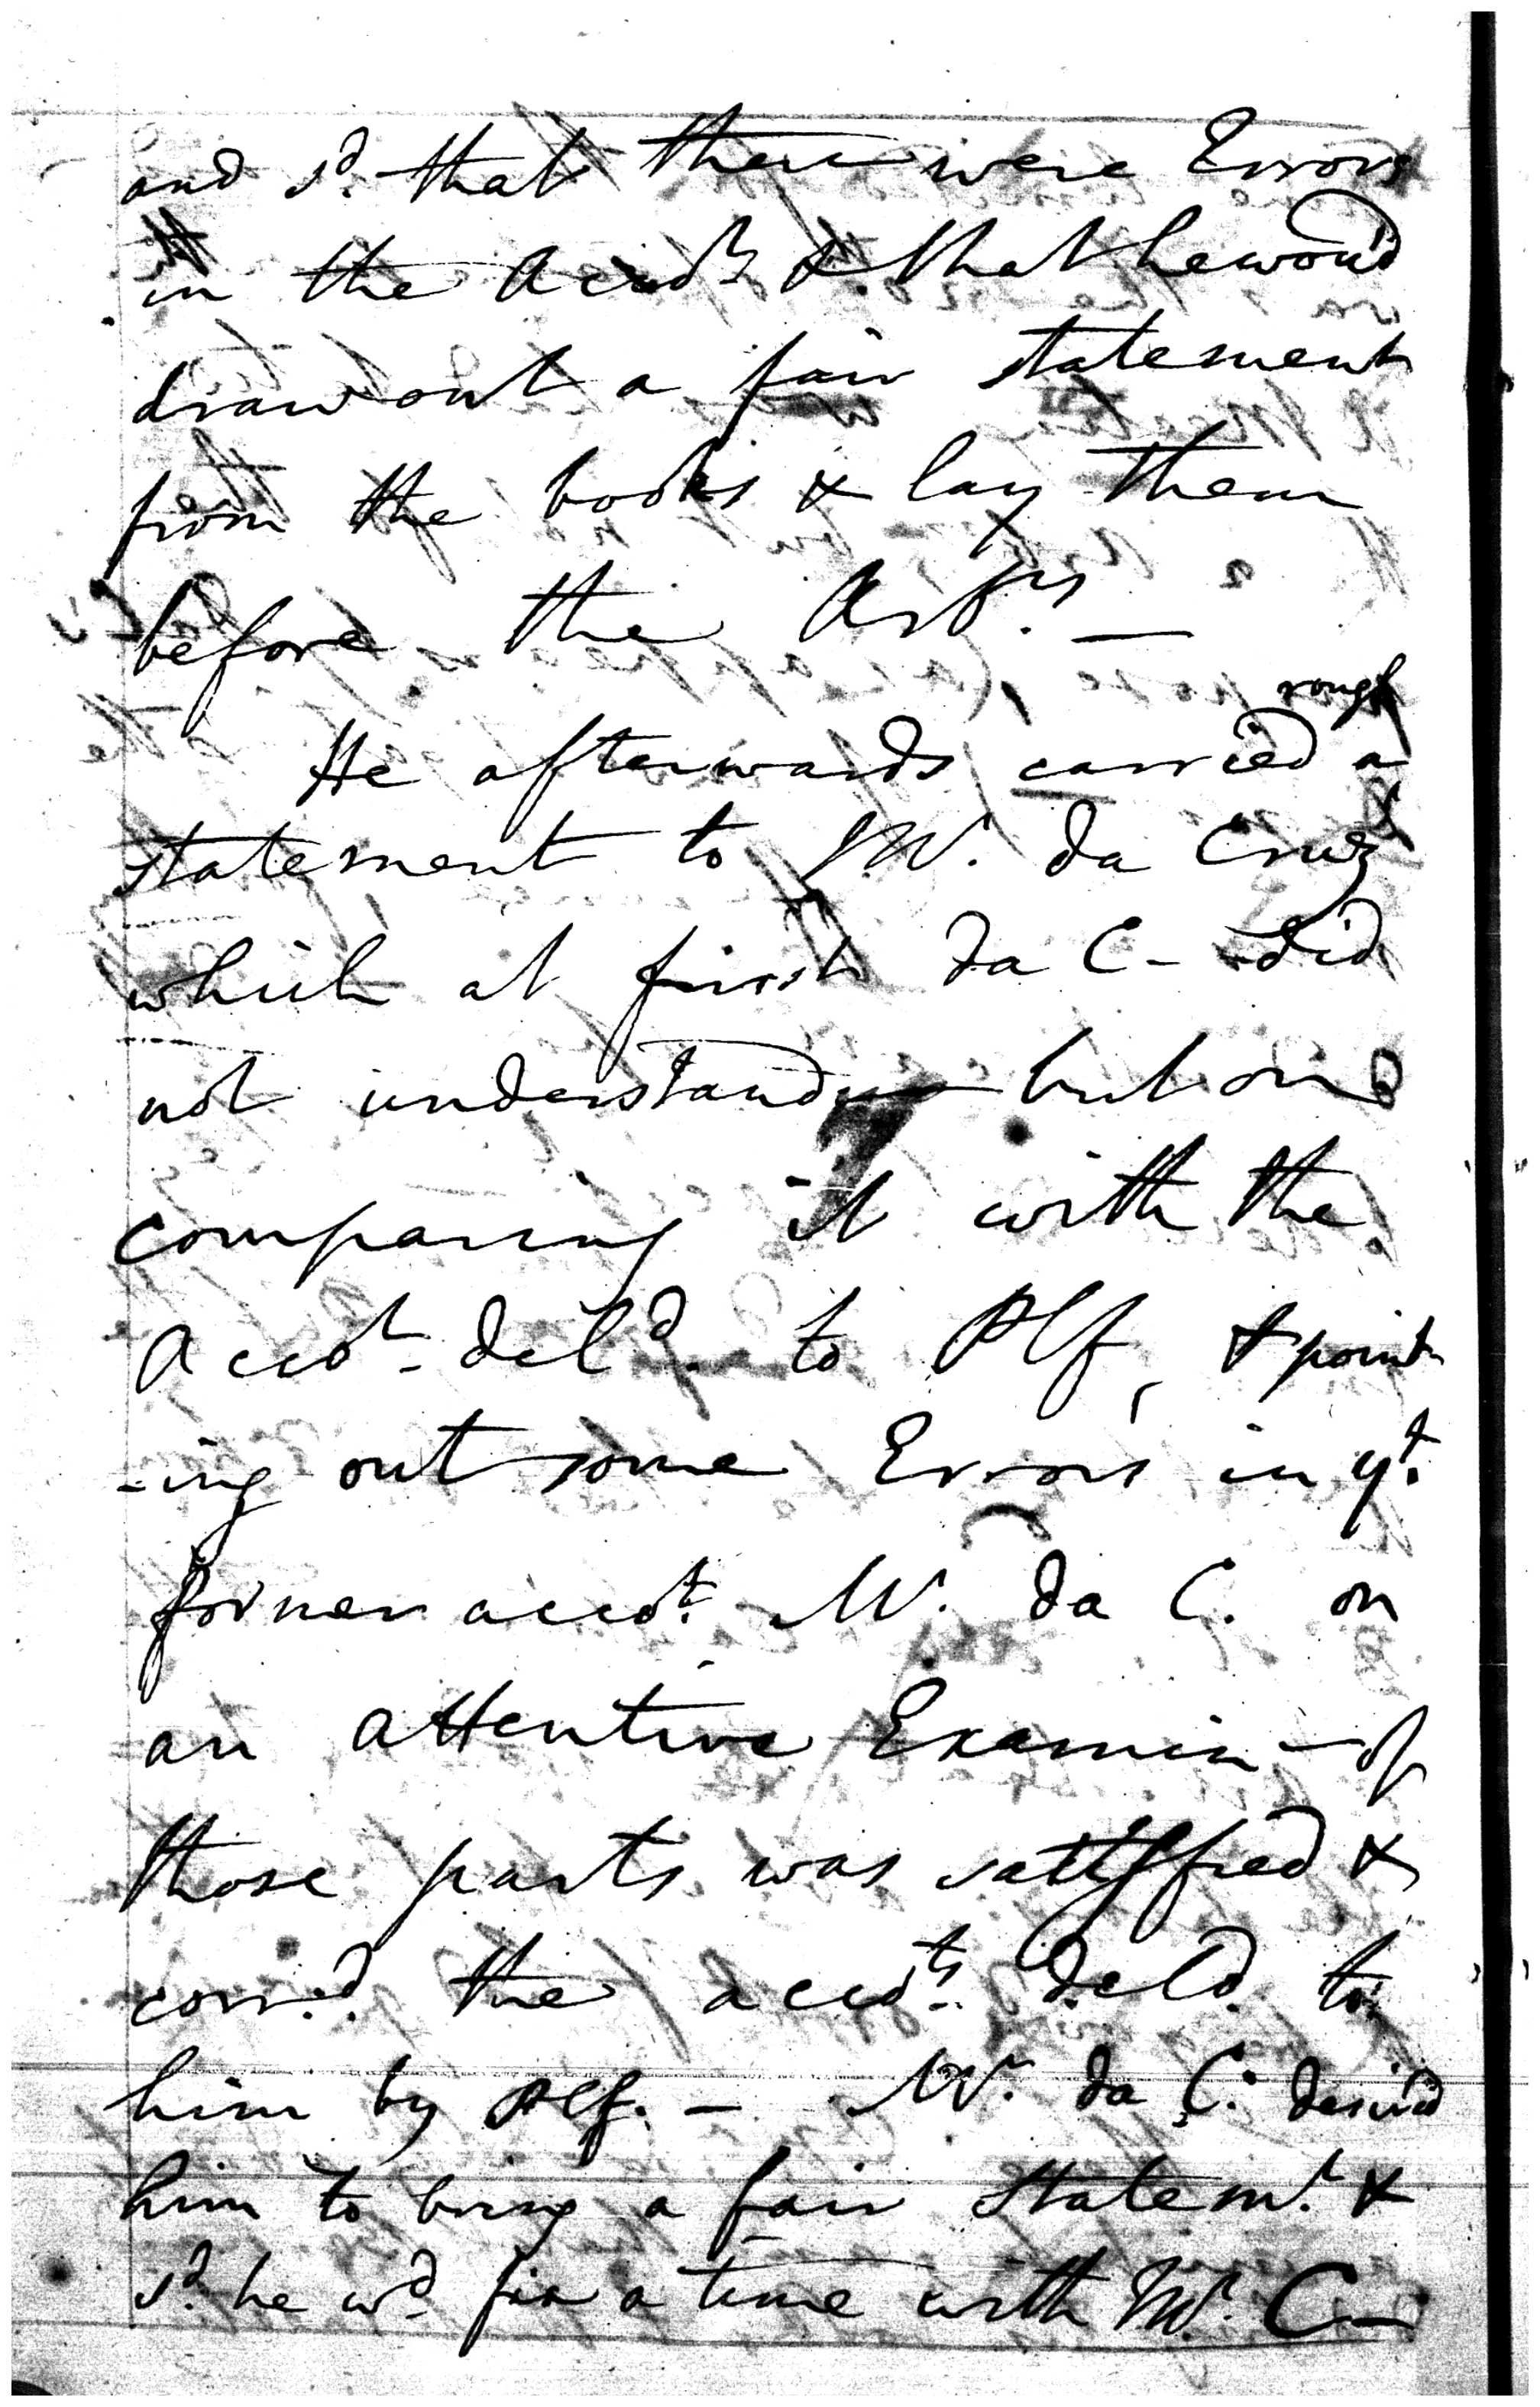 and sd. that there were Errors
in the Accots & that he wou'd
draw out a fair statement
from the books & lay them
before the Arbrs. —
rough
He afterwards carried a
statement to Mr. da Cruz
which at first da C - did
not understand but on
comparing it with the
Accot. deld. to Plf, & point
-ing out some Errors in yt.
former accot. Mr. da C. on
an attentive Examin - of
those parts was satisfied &
corrd. the accots. deld. to
him by Plf. - Mr. da C. desired
him to bring a fair statemt. &
sd. he wd. fix a time with Mr. C—